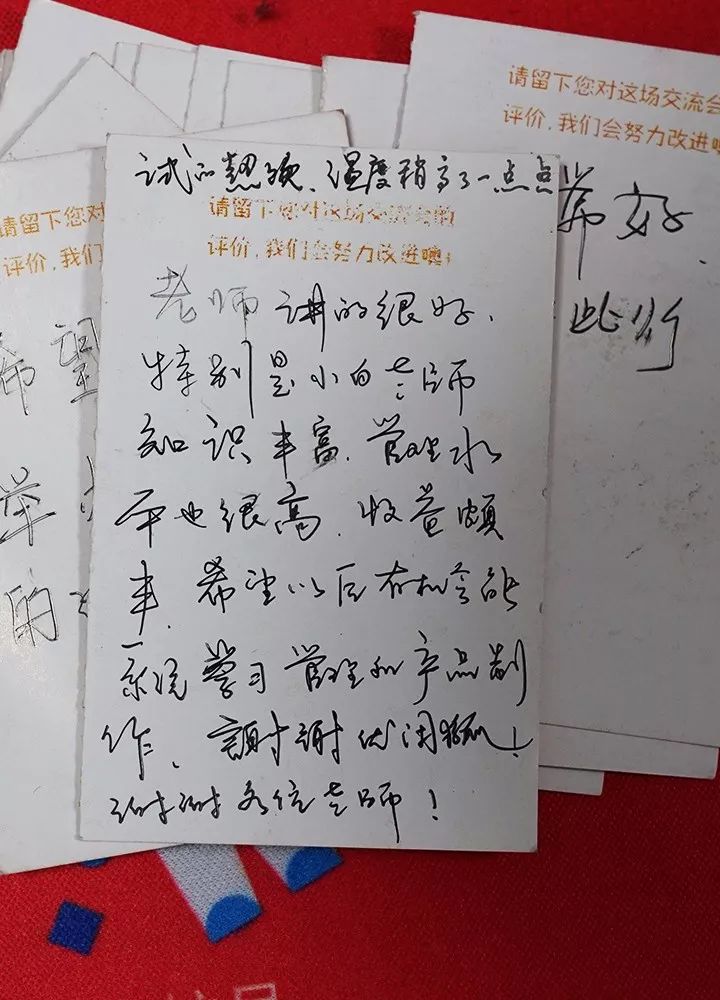 试品熱飲、温度稍高了一点点
请留下您对这场交流会的
评价,我们会努力改进噢!
老师讲的很好、
特别是小白老师
知识丰富、管理水
平也很高、收益颇
丰、希望以后有机会能
系统学习管理和产品制
作、謝謝
谢谢各位老师!
请留下您对这场交流会
评价,我们会努力改进噢
此行
请留下您对
评价,我们
希望
举
的